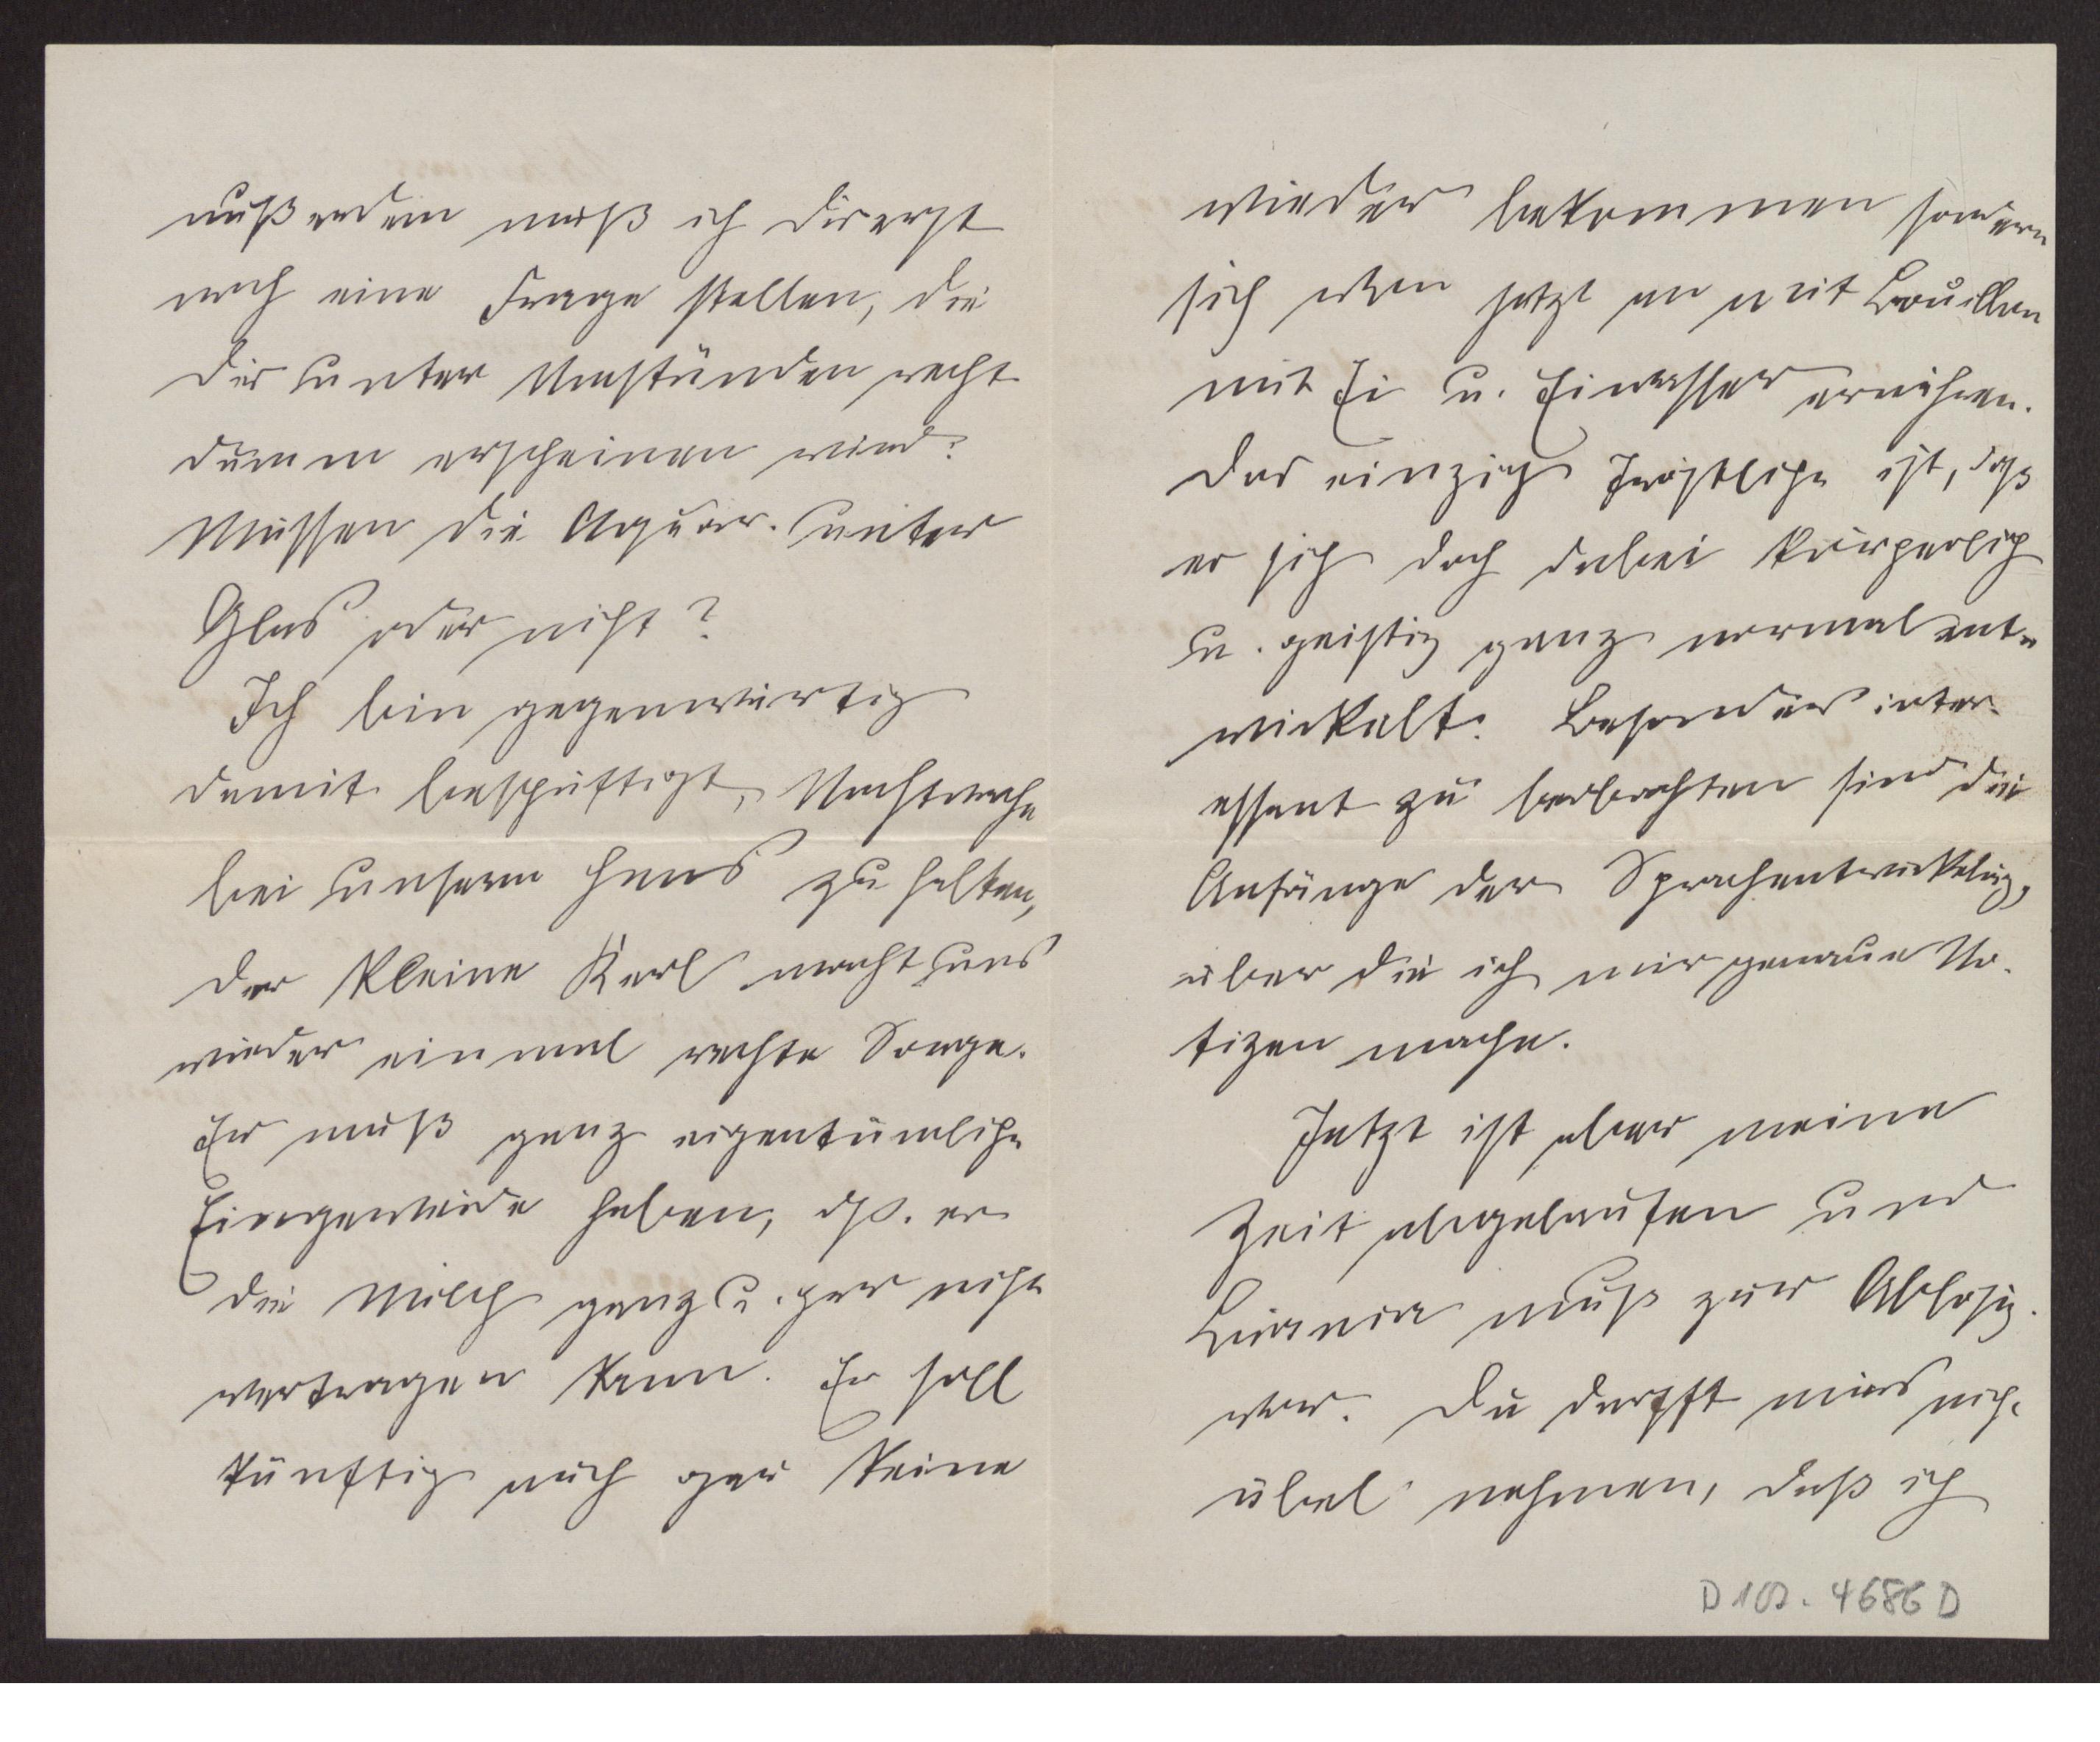 außerdem muß ich Dir erst
noch eine Frage stellen, die
Dir unter Umständen recht
dumm erscheinen wird:
Müssen die Aquar. unter
Glas oder nicht?
Ich bin gegenwärtig
damit beschäftigt, Nachtwache
bei unserm Hans zu halten,
der kleine Kerl macht uns
wieder einmal rechte Sorge.
Er muß ganz eigentümliche
Eingeweide haben, dß. er
die Milch ganz u. gar nicht
vertragen kann. Er soll
künftig auch gar keine
wieder bekommen sondern
sich von jetzt an mit Bouillon
mit Ei u. Eiwasser ernähren.
Das einzig Tröstliche ist, daß
er sich doch dabei körperlich
u. geistig ganz normal ent-
wickelt. Besonders inter-
essant zu beobachten sind die
Anfänge der Sprachentwickelung,
über die ich mir genaue No-
tizen mache.
Jetzt ist aber meine
Zeit abgelaufen und
muß zur Ablösg.
vor. Du darfst mirs nicht
übel nehmen, daß ich
D 102. 4686 D